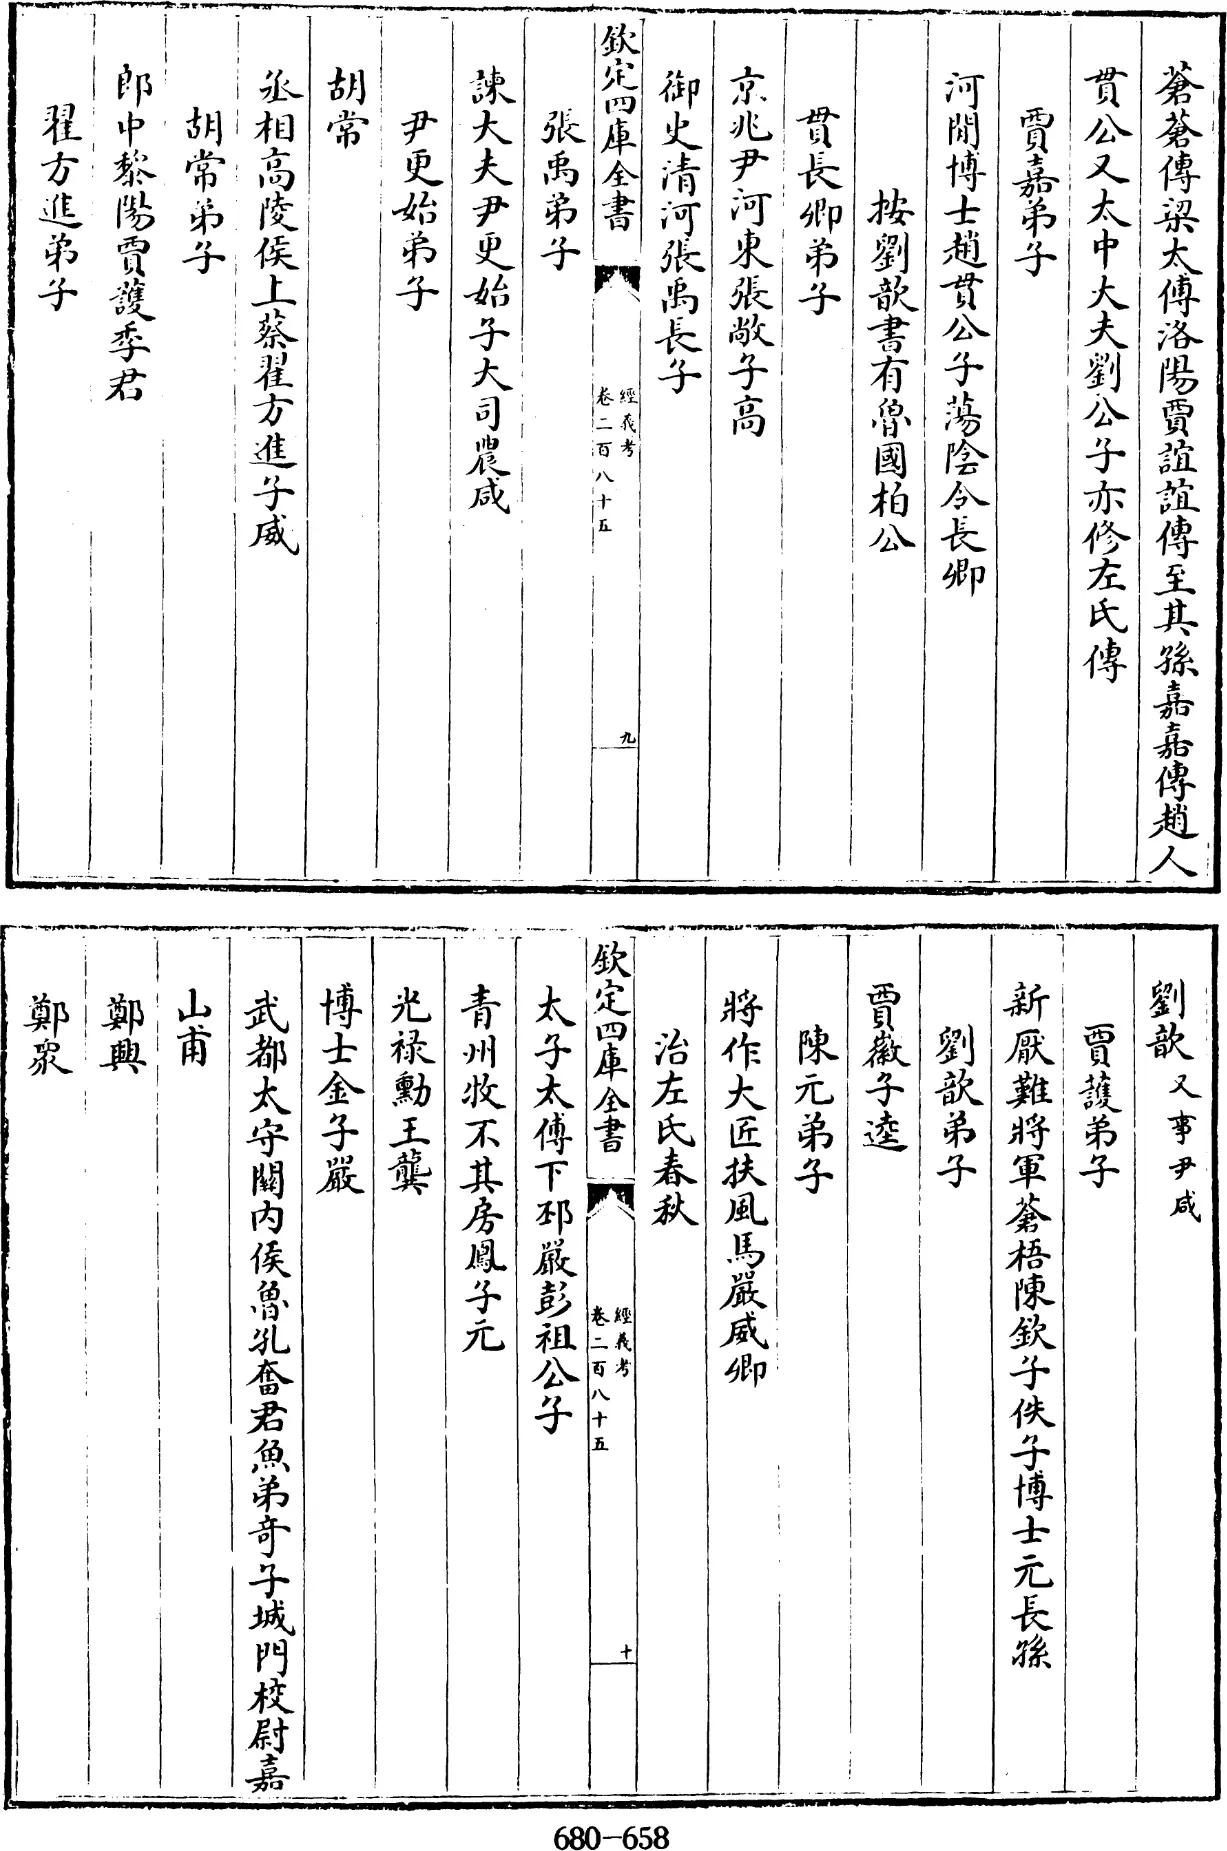 蒼蒼傳梁太傅洛陽賈誼誼傳至其孫嘉嘉傳趙人
貫公又太中大夫劉公子亦修左氏傳
賈嘉弟子
河間博士趙貫公子蕩陰令長卿
按劉歆書有魯國柏公
貫長卿弟子
京兆尹河東張敞子高
御史清河張禹長子
欽定四庫全書
經義考
卷二百八十五
九
張禹弟子
諫大夫尹更始子大司農咸
尹更始弟子
胡常
丞相高陵侯上蔡翟方進子威
胡常弟子
郎中黎陽賈護季君
翟方進弟子
劉歆又事尹咸
賈護弟子
新厭難將軍蒼梧陳欽子佚子博士元長孫
劉歆弟子
賈徽子逵
陳元弟子
將作大匠扶風馬嚴威卿
治左氏春秋
欽定四庫全書
經義考
卷二百八十五
十
太子太傅下邳嚴彭祖公子
青州牧不其房鳳子元
光禄勳王龔
博士金子嚴
武都太守關内侯魯孔奮君魚弟奇子城門校尉嘉
山甫
鄭興
鄭衆
680-658